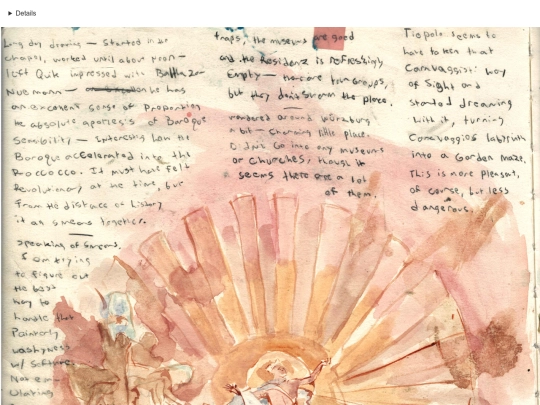 Details
Long day drawing — Started in the
chapel, worked until about noon —
left Quite impressed with Balthazar
Neumann — he has
an excellent sense of Proportion
the absolute apotheosis of Baroque
Sensibility — Interesting how the
Baroque accelerated into the
Roccocco. It must have felt
Revolutionary at the time, but
From the distance of history
it all smears together.
Speaking of smears,
I am trying
to figure out
the best
way to
handle that
Painterly
washyness
w/ Software
Now em-
ulating
traps, the museums are good
and the Residenz is refreshingly
Empty — there are tour groups,
but they don't swarm the place.
wandered around Würzburg
a bit — Charming little place.
Didn't Go into any museums
or Churches, though it
seems there are a lot
of them.
Tiepolo seems to
have taken that
Caravaggisti way
of Sight and
started dreaming
with it, turning
Caravaggios labyrinth
into a Garden maze.
This is more pleasant,
of course, but less
dangerous.